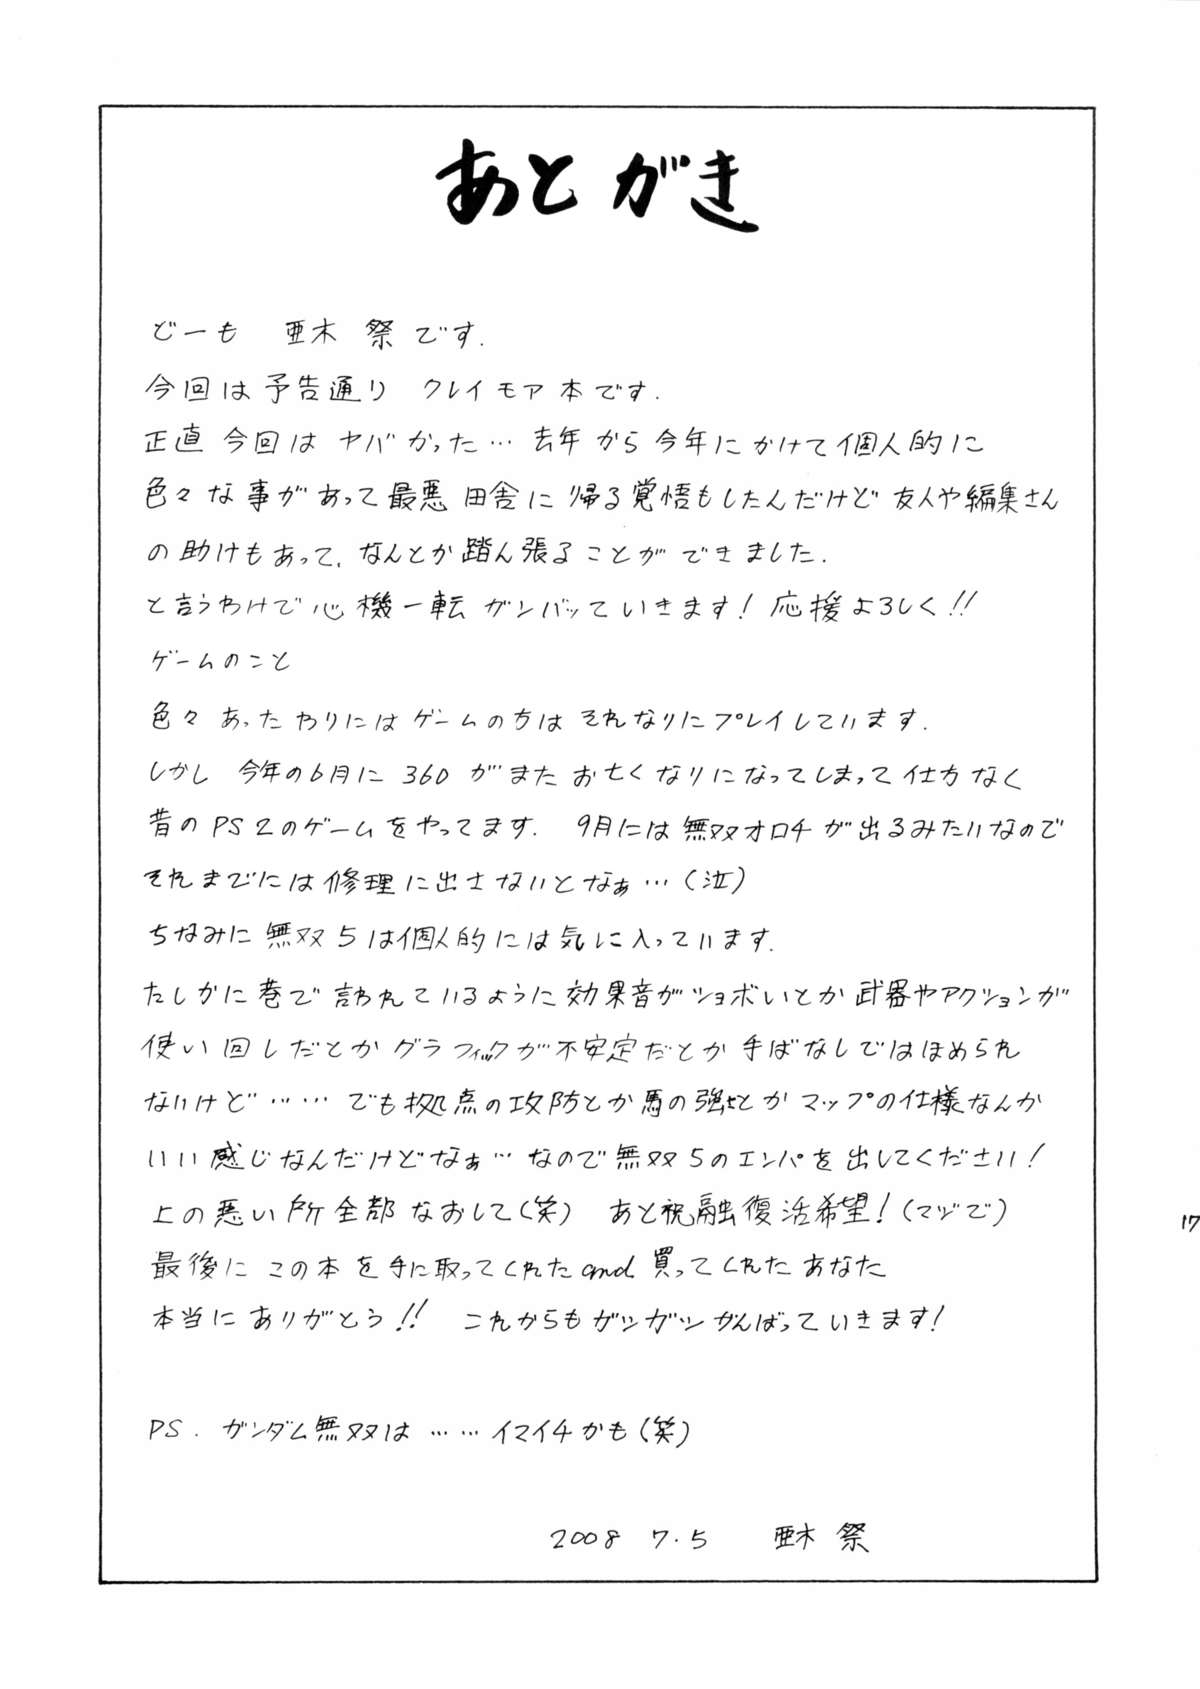 あとがき
どーも 亜木 祭です.
今回は予告通り クレイモア本です.
正直 今回は ヤバかった… 去年から今年にかけて個人的に
色々な事があって最悪 田舎に帰る覚悟もしたんだけど 友人や編集さん
の助けもあって、なんとか踏ん張ることができました.
と言うわけで心機一転 ガンバッていきます! 応援よろしく!!
ゲームのこと
色々 あったわりにはゲームの方は それなりにプレイしています.
しかし 今年の6月に 360 がまた お亡くなりになってしまって仕方なく
昔のPS2のゲームをやってます. 9月には無双オロチが出るみたいなので
それまでには修理に出さないとなぁ…(泣)
ちなみに無双5は個人的には気に入っています.
たしかに巷で言われているように効果音がショボいとか武器やアクションが
使い回しだとかグラフィックが不安定だとか手ばなしではほめられ
ないけど……でも拠点の攻防とか馬の強さとかマップの仕様なんか
いい感じなんだけどなぁ…なので無双5のエンパを出してください!
上の悪い所全部なおして(笑) あと祝融復活希望!(マヅで)
最後に この本を手に取ってくれたand買ってくれたあなた
本当にありがとう!! これからもガツガツがんばっていきます!
PS. ガンダム無双は……イマイチかも(笑)
2008 7.5 亜木 祭
17